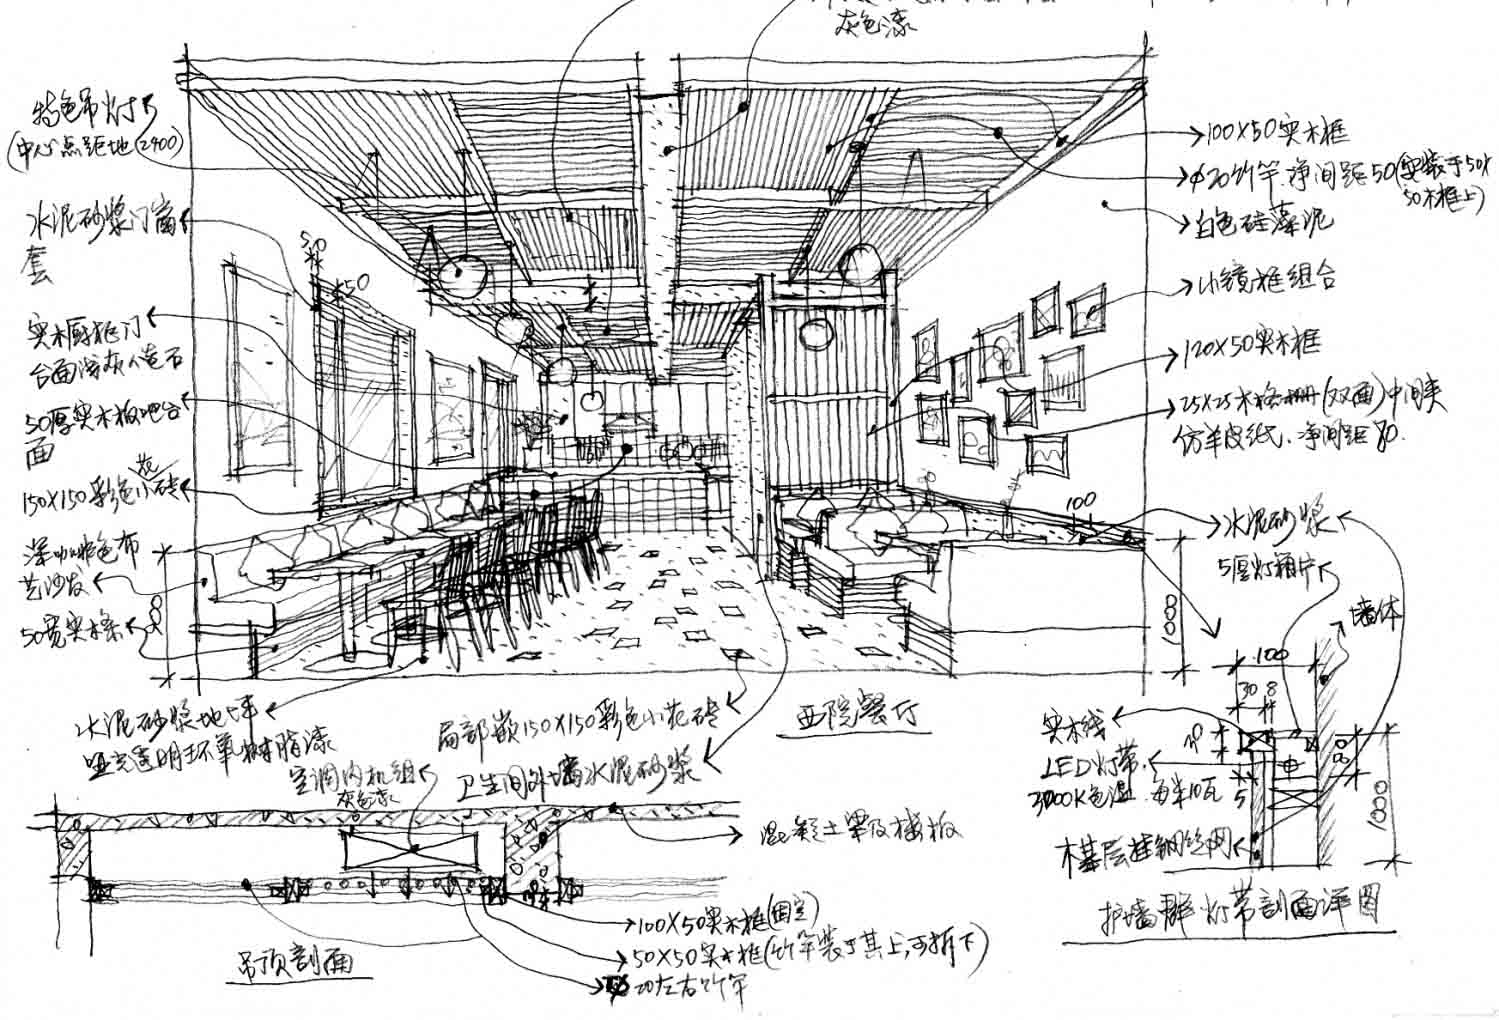 灰色漆
特色吊灯
(中心点距地2400)
水泥砂浆门窗
套
实木厨柜门
台面浅灰人造石
50厚实木板吧台
面
150X150彩色小花砖
深咖啡色布
艺沙发
50宽实木条
50
50
800
100X50实木框
φ20竹竿.净间距50(安装于50X
50木框上)
白色硅藻泥
小镜框组合
120X50实木框
25X25木格栅(双面)中间夹
仿羊皮纸.净间距80.
100
水泥砂浆
5厚灯箱片
墙体
1000
水泥砂浆地坪
哑光透明环氧树脂漆
局部嵌150X150彩色小花砖
西院餐厅
空调内机组
灰色漆
卫生间外墙水泥砂浆
混凝土梁及楼板
100X50实木框(固定)
50X50实木框(竹竿装于其上,可拆下)
20左右竹竿
吊顶剖面
100
30 8
实木线
LED灯带.
3000K色温.每米10瓦
5
80
1000
木基层挂钢丝网
护墙群灯带剖面详图